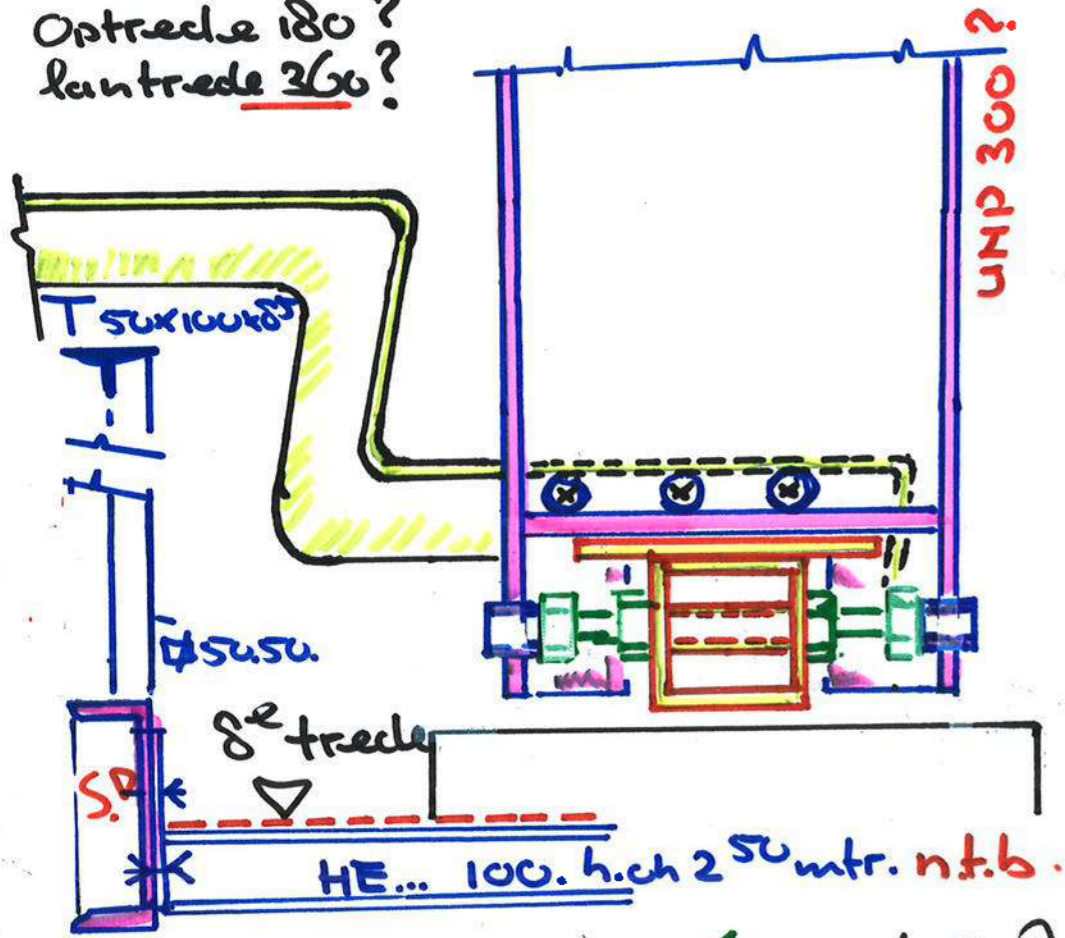 Optrede 180?
Aantrede 360?
UNP 300?
T 50x100x8.5
50.50.
8e trede
S.P
HE... 100. h.oh 2 50 mtr. n.t.b.